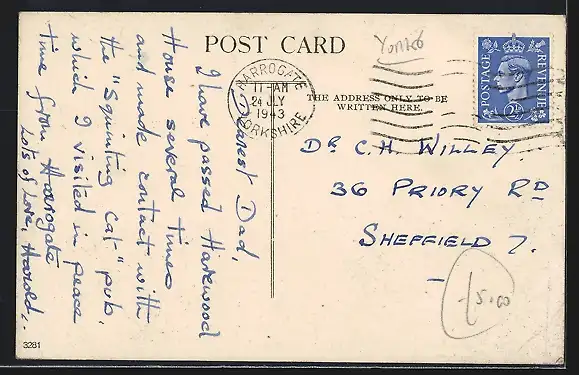 POST CARD
Yorks
HARROGATE
11-AM
24 JLY
1943
YORKSHIRE
POSTAGE
REVENUE
2½D
THE ADDRESS ONLY TO BE
WRITTEN HERE
Dearest Dad,
I have passed Harewood
House several times
and made contact with
the "Squinting Cat" pub.
which I visited in peace
time from Harrogate
Lots of Love, Harold.
DR C.H. WILLEY
36 PRIORY RD
SHEFFIELD 7.
£5.00
3281